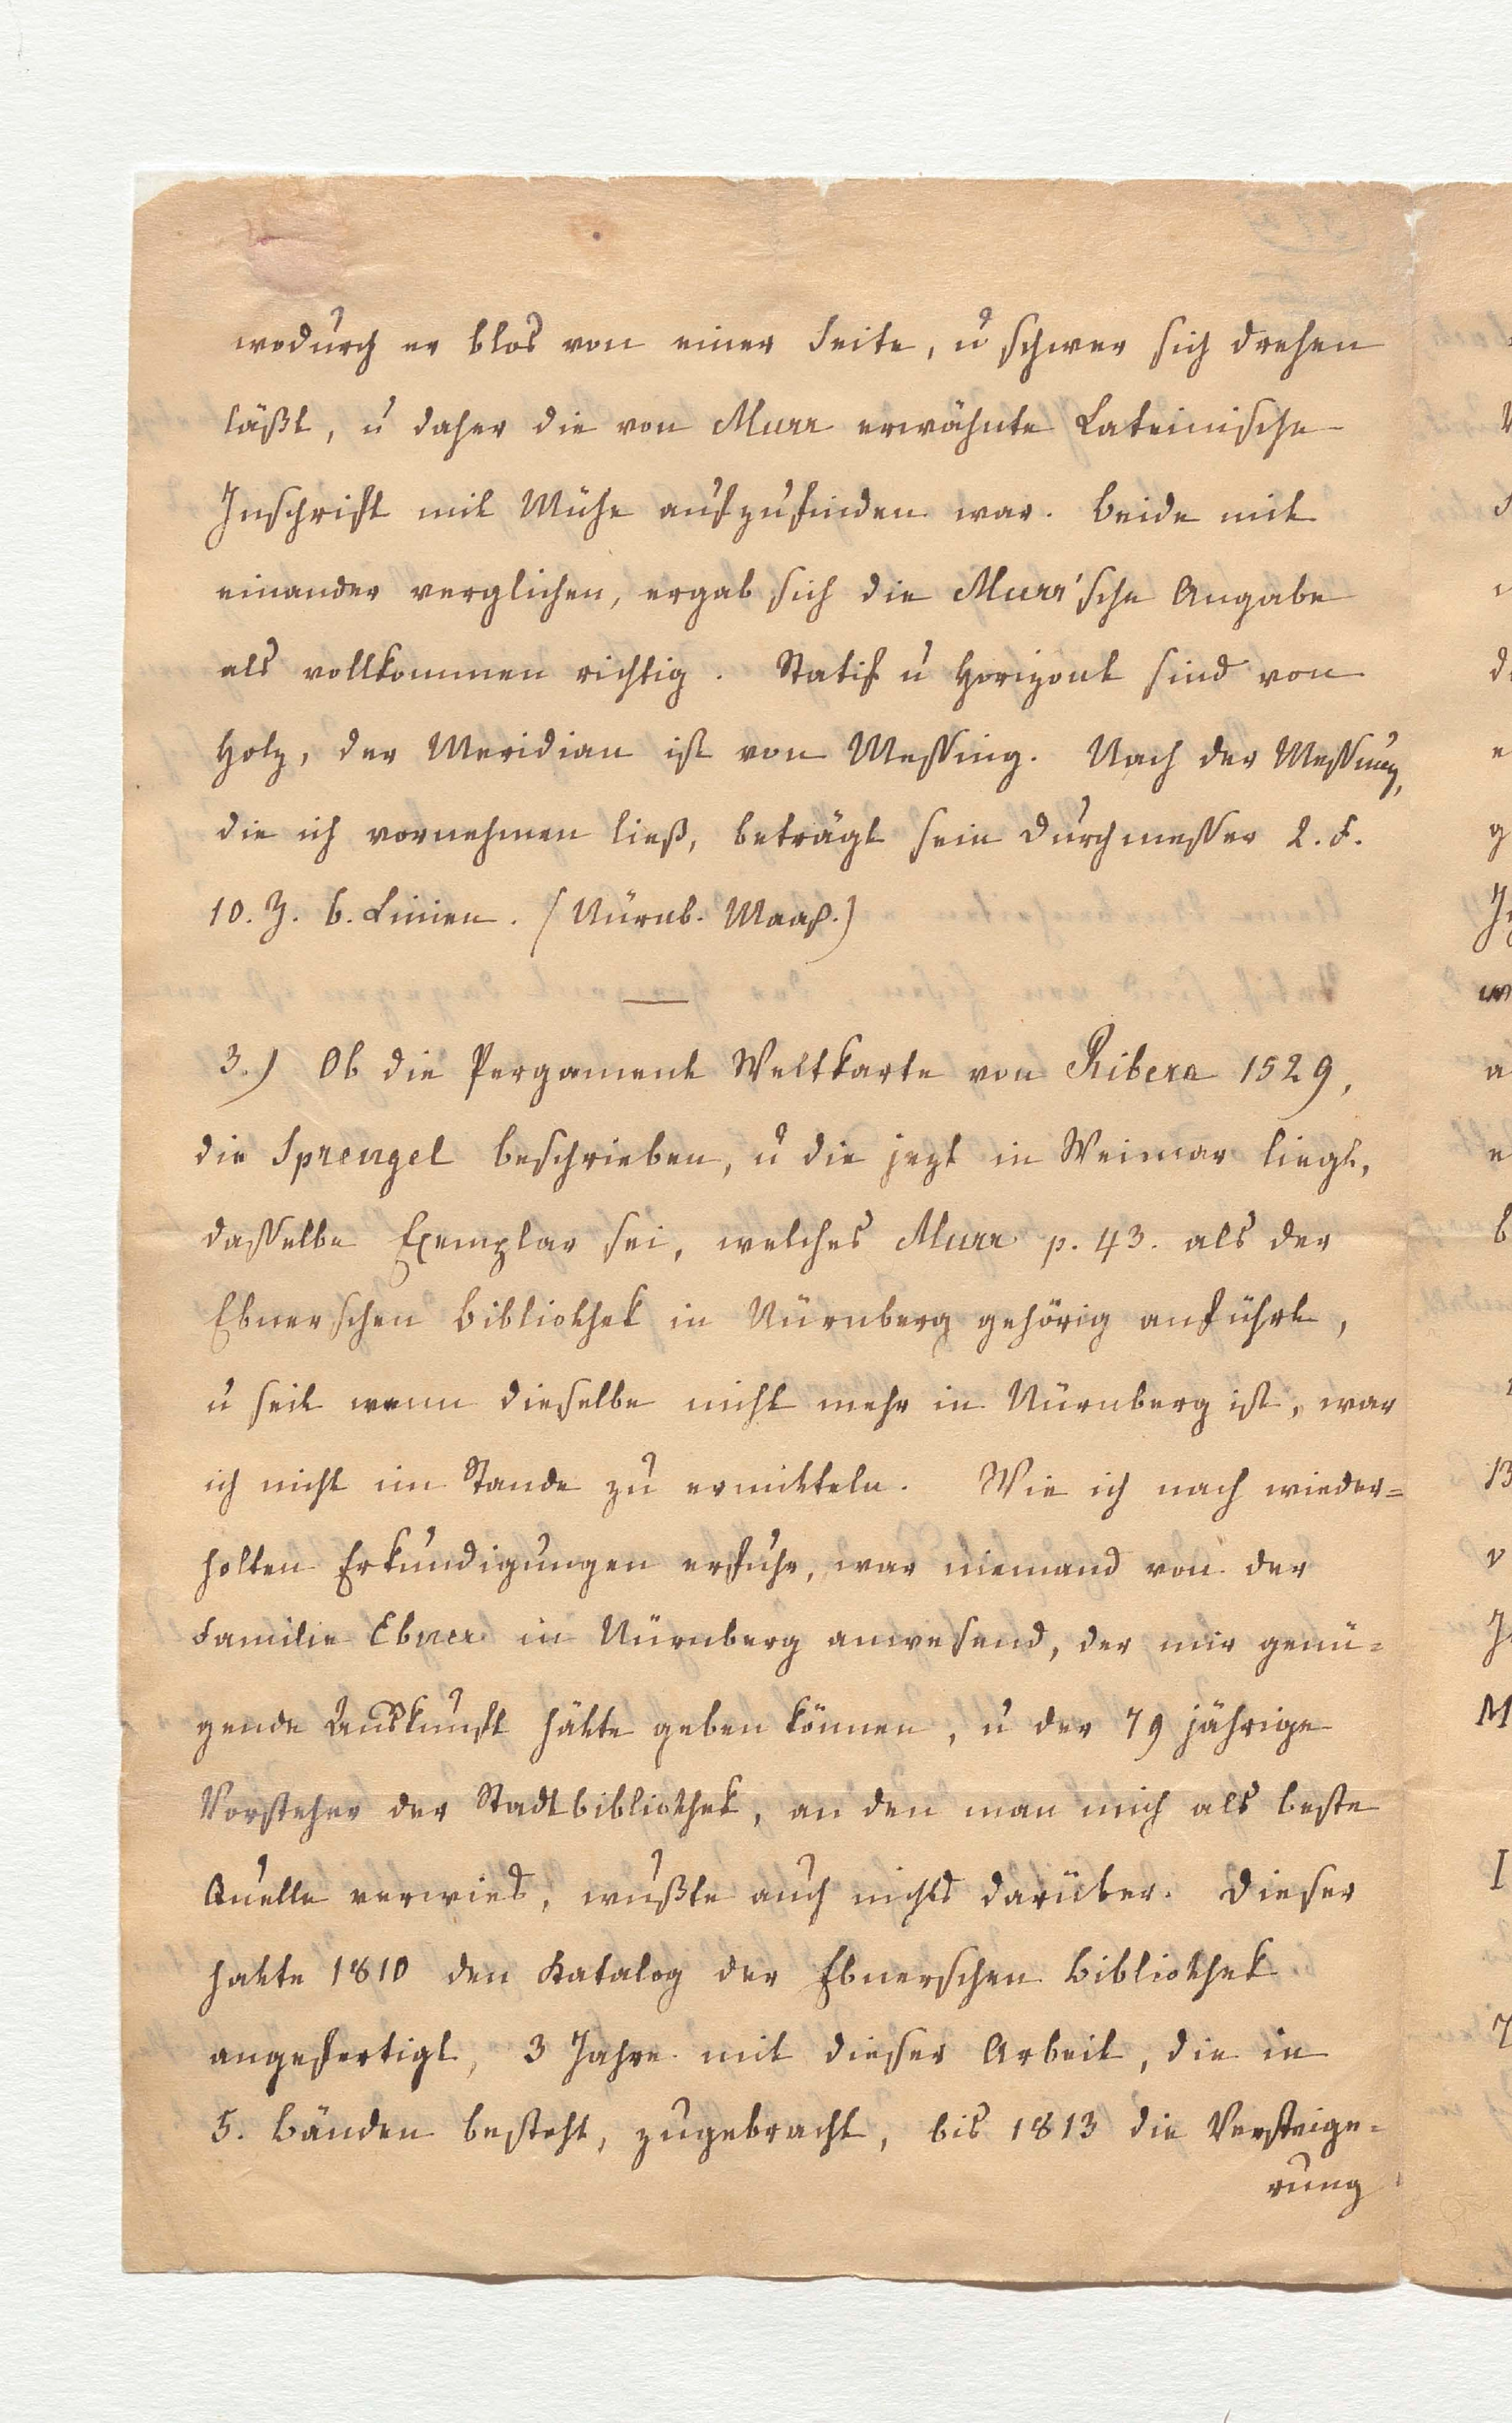 wodurch er blos von einer Seite, u schwer sich drehen
läßt, u daher die von Murr erwähnte Lateinische
Inschrift mit Mühe aufzufinden war. Beide mit
einander verglichen, ergab sich die Murr'sche Angabe
als vollkommen richtig. Statif u Horizont sind von
Holz, der Meridian ist von Messing. Nach der Messung,
die ich vornehmen ließ, beträgt sein Durchmesser 2. F.
10. Z. 6. Linien. (Nürnb. Maaß.)
3.) Ob die Pergament Weltkarte von Ribera 1529,
die Sprengel beschrieben, u die jezt in Weimar liegt,
dasselbe Exemplar sei, welches Murr p. 43. als der
Ebnerschen Bibliothek in Nürnberg gehörig anführt,
u seit wenn dieselbe nicht mehr in Nürnberg ist, war
ich nicht im Stande zu ermitteln. Wie ich nach wieder=
holten Erkundigungen erfuhr, war niemand von der
Familie Ebner in Nürnberg anwesend, der mir genü=
gende Auskunft hätte geben können, u der 79 jährige
Vorsteher der Stadtbibliothek, an den man mich als beste
Quelle verwies, wußte auch nichts darüber. Dieser
hatte 1810 den Katalog der Ebnerschen Bibliothek
angefertigt, 3 Jahre mit dieser Arbeit, die in
5. Bänden besteht, zugebracht, bis 1813 die Versteige=
rung